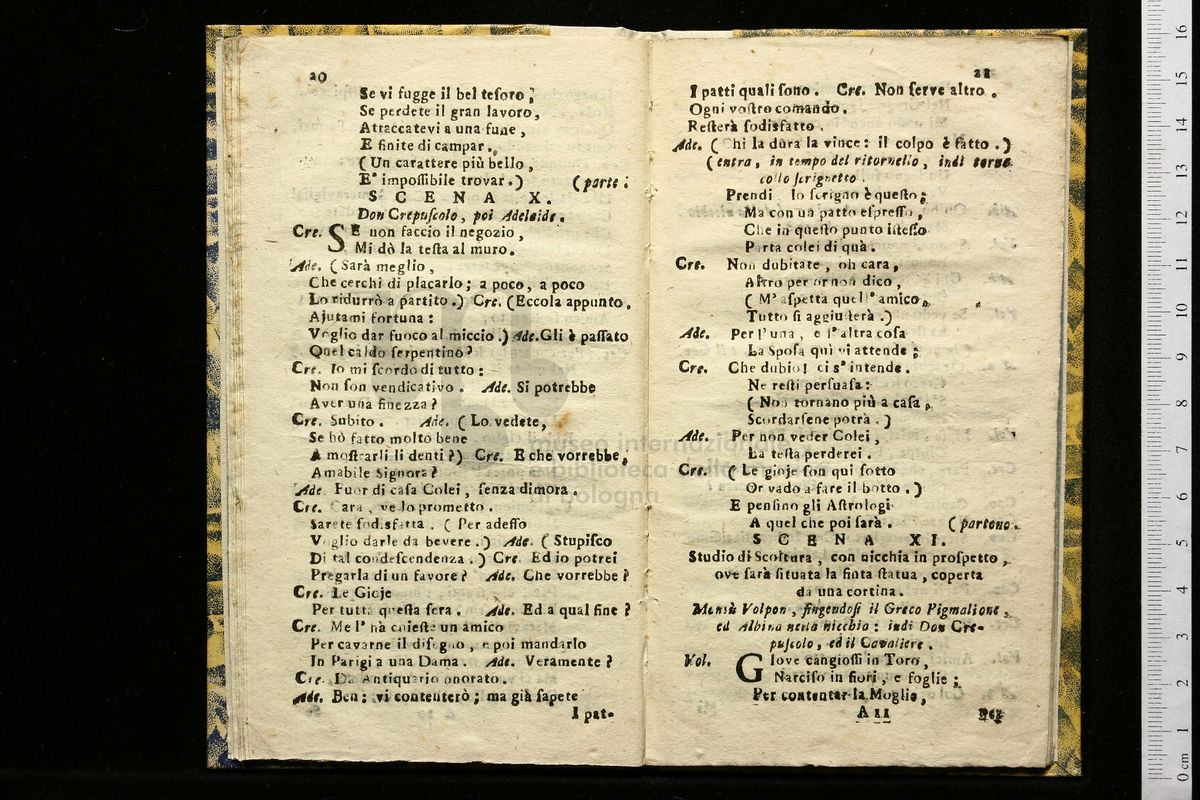 20
Se vi fugge il bel teſoro;
Se perdete il gran lavoro,
Attaccatevi a una fune,
E finite di campar.
(Un carattere più bello,
E' impoſſibile trovar.) (parte.
SCENA X.
Don Crepuſcolo, poi Adelaide.
Cre. SE non faccio il negozio,
Mi dò la teſta al muro.
Ade. (Sarà meglio,
Che cerchi di placarlo; a poco, a poco
Lo ridurrò a partito.) Cre. (Eccola appunto.
Ajutami fortuna:
Voglio dar fuoco al miccio.) Ade. Gli è paſſato
Quel caldo ſerpentino?
Cre. Io mi ſcordo di tutto:
Non ſon vendicativo. Ade. Si potrebbe
Aver una finezza?
Cre. Subito. Ade. (Lo vedete,
Se hò fatto molto bene
A moſtrarli li denti?) Cre. E che vorrebbe,
Amabile Signora?
Ade. Fuor di caſa Colei, ſenza dimora.
Cre. Cara, ve lo prometto.
Sarete ſodisfatta. (Per adeſſo
Voglio darle da bevere.) Ade. (Stupiſco
Di tal condeſcendenza.) Cre. Ed io potrei
Pregarla di un favore? Ade. Che vorrebbe?
Cre. Le Gioje
Per tutta queſta ſera. Ade. Ed a qual fine?
Cre. Me l' hà chieſte un amico
Per cavarne il diſegno, e poi mandarlo
In Parigi a una Dama. Ade. Veramente?
Cre. Da Antiquario onorato.
Ade. Ben: vi contenterò; ma già ſapete
I pat-
21
I patti quali ſono. Cre. Non ſerve altro.
Ogni voſtro comando.
Reſterà ſodisfatto.
Ade. (Chi la dura la vince: il colpo è fatto.)
(entra, in tempo del ritornello, indi torna
collo ſcrignetto.
Prendi lo ſcrigno è queſto;
Ma con un patto eſpreſſo,
Che in queſto punto iſteſſo
Parta colei di quà.
Cre. Non dubitate, oh cara,
Altro per or non dico,
(M' aſpetta quell' amico,
Tutto ſi aggiuſterà.)
Ade. Per l' una, e l' altra coſa
La Spoſa quì vi attende;
Cre. Che dubio! ci s' intende.
Ne reſti perſuaſa:
(Non tornano più a caſa,
Scordarſene potrà.)
Ade. Per non veder Colei,
La teſta perderei.
Cre. (Le gioje ſon qui ſotto
Or vado a fare il botto.)
E penſino gli Aſtrologi
A quel che poi ſarà. (partono.
SCENA XI.
Studio di Scoltura, con nicchia in proſpetto,
ove ſarà ſituata la finta ſtatua, coperta
da una cortina.
Mensù Volpon, fingendoſi il Greco Pigmalione,
ed Albina nella nicchia: indi Don Cre-
puſcolo, ed il Cavaliere.
Vol. GIove cangioſſi in Toro,
Narciſo in fiori, e foglie;
Per contentar la Moglie,
A 11 Per
museo internazionale
e biblioteca della musica
di bologna